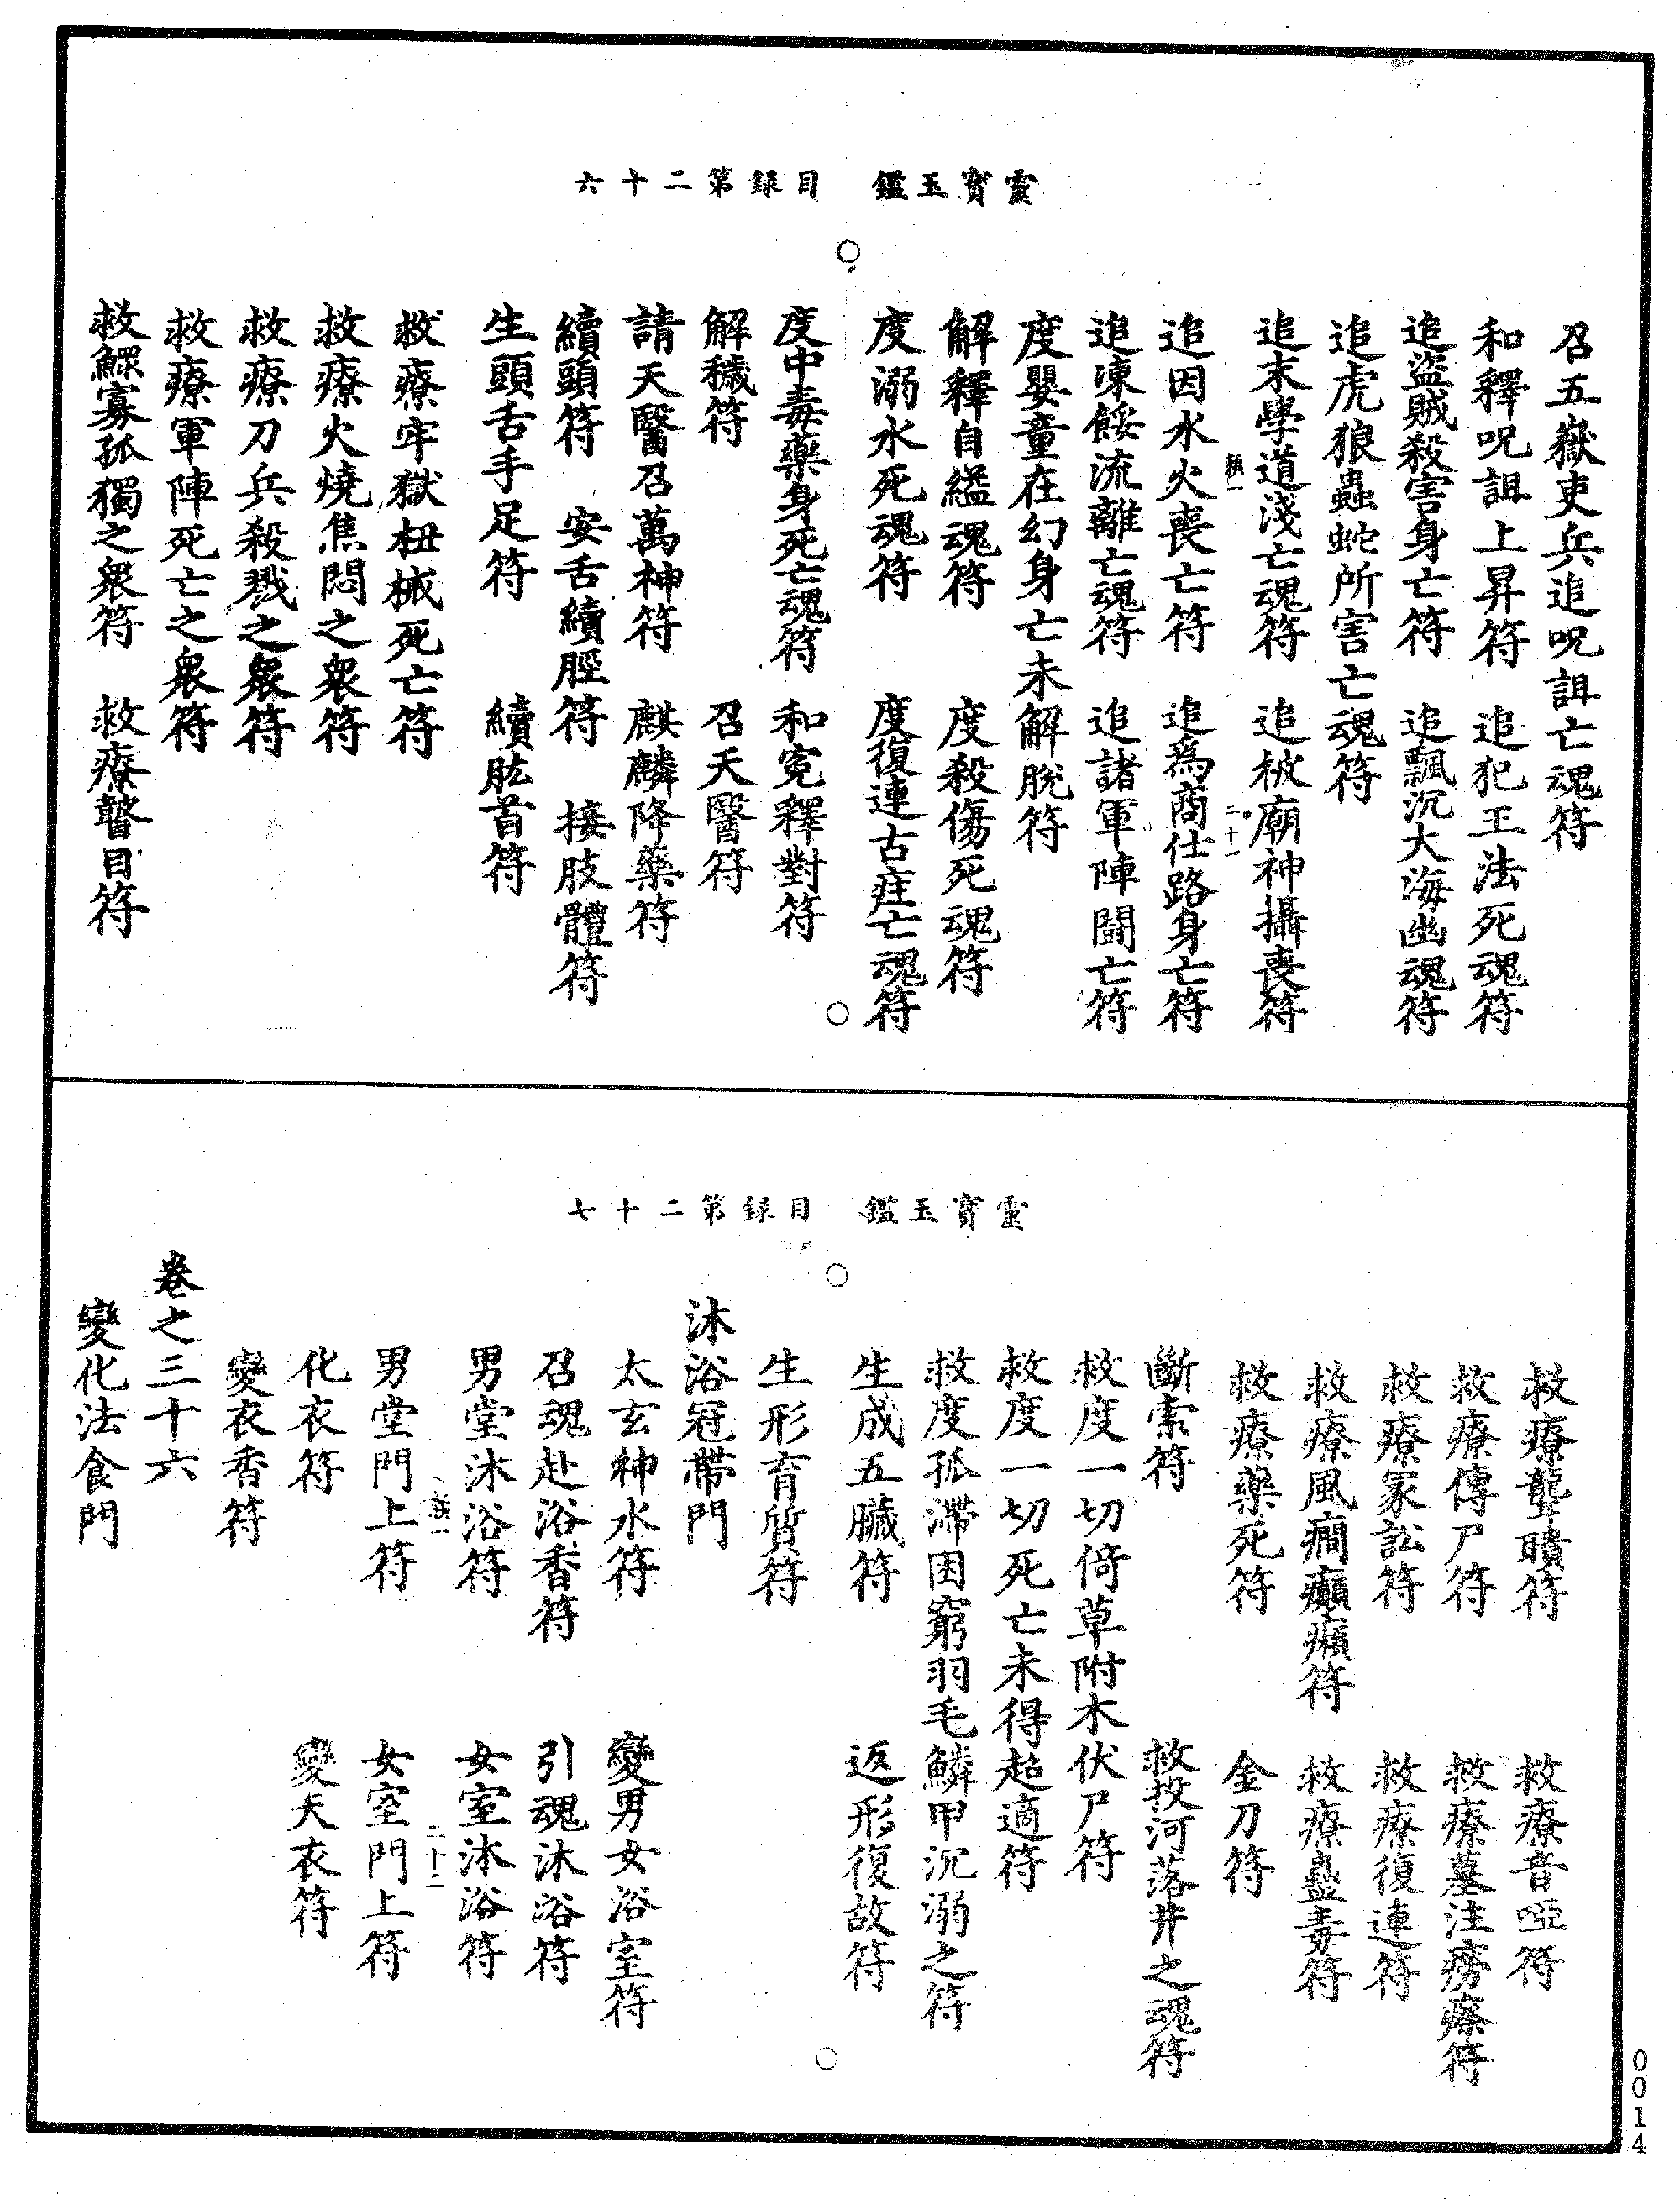 靈寶玉鑑　目録第二十六
召五嶽吏兵追呪詛亡魂符
和釋呪詛上昇符　追犯王法死魂符
追盜賊殺害身亡符　追飄沉大海幽魂符
追虎狼蟲蛇所害亡魂符
追末學道淺亡魂符　追被廟神攝喪符
二十一
追因水火喪亡符　追爲商仕路身亡符
追凍餒流離亡魂符　追諸軍陣鬪亡符
度嬰童在幻身亡未解脫符
解釋自縊魂符　度殺傷死魂符
度溺水死魂符　度復連古疰亡魂符
度中毒藥身死亡魂符　和寃釋對符
解穢符　召天醫符
請天醫召萬神符　麒麟降藥符
續頭符　安舌續脛符　接肢體符
生頭舌手足符　續肱首符
救療牢獄杻械死亡符
救療火燒焦悶之衆符
救療刀兵殺戮之衆符
救療軍陣死亡之衆符
救鰥寡孤獨之衆符　救療瞽目符
靈寶玉鑑　目録第二十七
救療聾聵符　救療音啞符
救療傳尸符　救療墓注癆瘵符
救療冢訟符　救療復連符
救療風癎癲癩符　救療蠱毒符
救療藥死符　金刀符
斷索符　救投河落井之魂符
救度一切倚草附木伏尸符
救度一切死亡未得超適符
救度孤滯困窮羽毛鱗甲沉溺之符
生成五臟符　返形復故符
生形育質符
沐浴冠帶門
太玄神水符　變男女浴室符
召魂赴浴香符　引魂沐浴符
男堂沐浴符　女室沐浴符
二十二
男堂門上符　女室門上符
化衣符　變天衣符
變衣香符
卷之三十六
變化法食門
0014